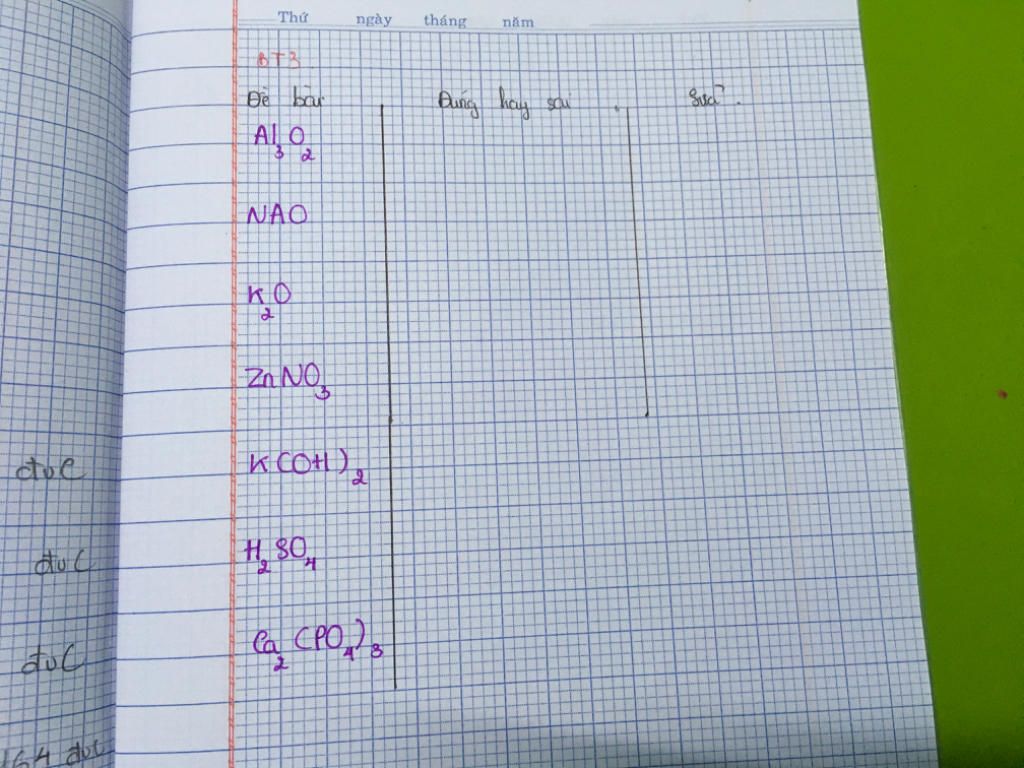 Thứ ngày tháng năm
BT3.
Đề bài Đúng hay sai Sửa.
Al3O2
NAO
K2O
ZnNO3
K(OH)2
đvC
H2SO4
đvC
Ca2(PO4)3
đvC
164 đvC